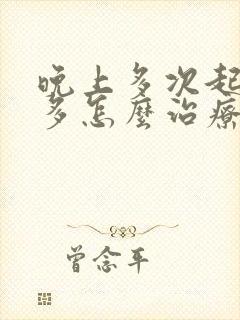 晚上多次起
多怎麼治療
曾念平